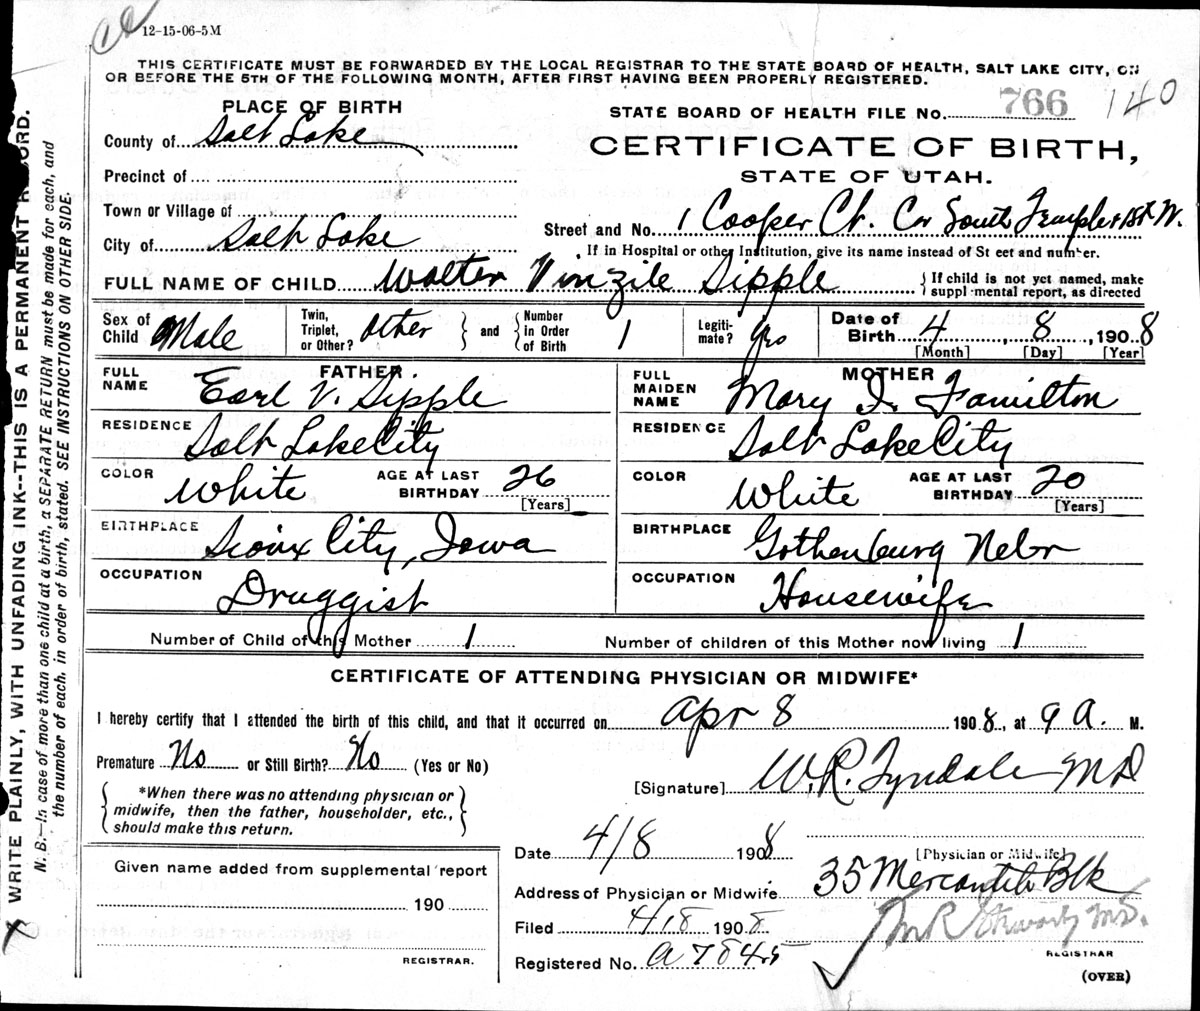 12-15-06-5M
THIS CERTIFICATE MUST BE FORWARDED BY THE LOCAL REGISTRAR TO THE STATE BOARD OF HEALTH, SALT LAKE CITY, ON
OR BEFORE THE 5TH OF THE FOLLOWING MONTH, AFTER FIRST HAVING BEEN PROPERLY REGISTERED.
PLACE OF BIRTH
County of Salt Lake
Precinct of
Town or Village of
City of Salt Lake
STATE BOARD OF HEALTH FILE No. 766 140
CERTIFICATE OF BIRTH,
STATE OF UTAH.
Street and No. 1 Cooper Ct. Cor South Temple & 1st W.
If in Hospital or other Institution, give its name instead of St eet and number.
FULL NAME OF CHILD Walter Vinzile Sipple { If child is not yet named, make
suppl mental report, as directed
Sex of Child Male
Twin, Triplet, or Other? Other } and { Number in Order of Birth 1
Legiti-mate? yes
Date of Birth 4, 8, 1908
[Month] [Day] [Year]
FATHER
FULL NAME Earl V. Sipple
RESIDENCE Salt Lake City
COLOR White AGE AT LAST BIRTHDAY 26
[Years]
BIRTHPLACE Sioux City, Iowa
OCCUPATION Druggist
MOTHER
FULL MAIDEN NAME Mary I. Hamilton
RESIDENCE Salt Lake City
COLOR White AGE AT LAST BIRTHDAY 20
[Years]
BIRTHPLACE Gothenburg Nebr
OCCUPATION Housewife
Number of Child of this Mother 1 Number of children of this Mother now living 1
CERTIFICATE OF ATTENDING PHYSICIAN OR MIDWIFE*
I hereby certify that I attended the birth of this child, and that it occurred on Apr 8 1908, at 9 a. M.
Premature No or Still Birth? No (Yes or No)
{ *When there was no attending physician or
midwife, then the father, householder, etc.,
should make this return. }
[Signature] W. R. Tyndale MD
[Physician or Midwife]
Date 4/8 1908
Address of Physician or Midwife 35 Mercantile Blk
Filed 4/8 1908
Registered No. a 7845
REGISTRAR
(OVER)
Given name added from supplemental report
190
REGISTRAR.
WRITE PLAINLY, WITH UNFADING INK--THIS IS A PERMANENT RECORD.
N. B.—In case of more than one child at a birth, a SEPARATE RETURN must be made for each, and
the number of each, in order of birth, stated. SEE INSTRUCTIONS ON OTHER SIDE.